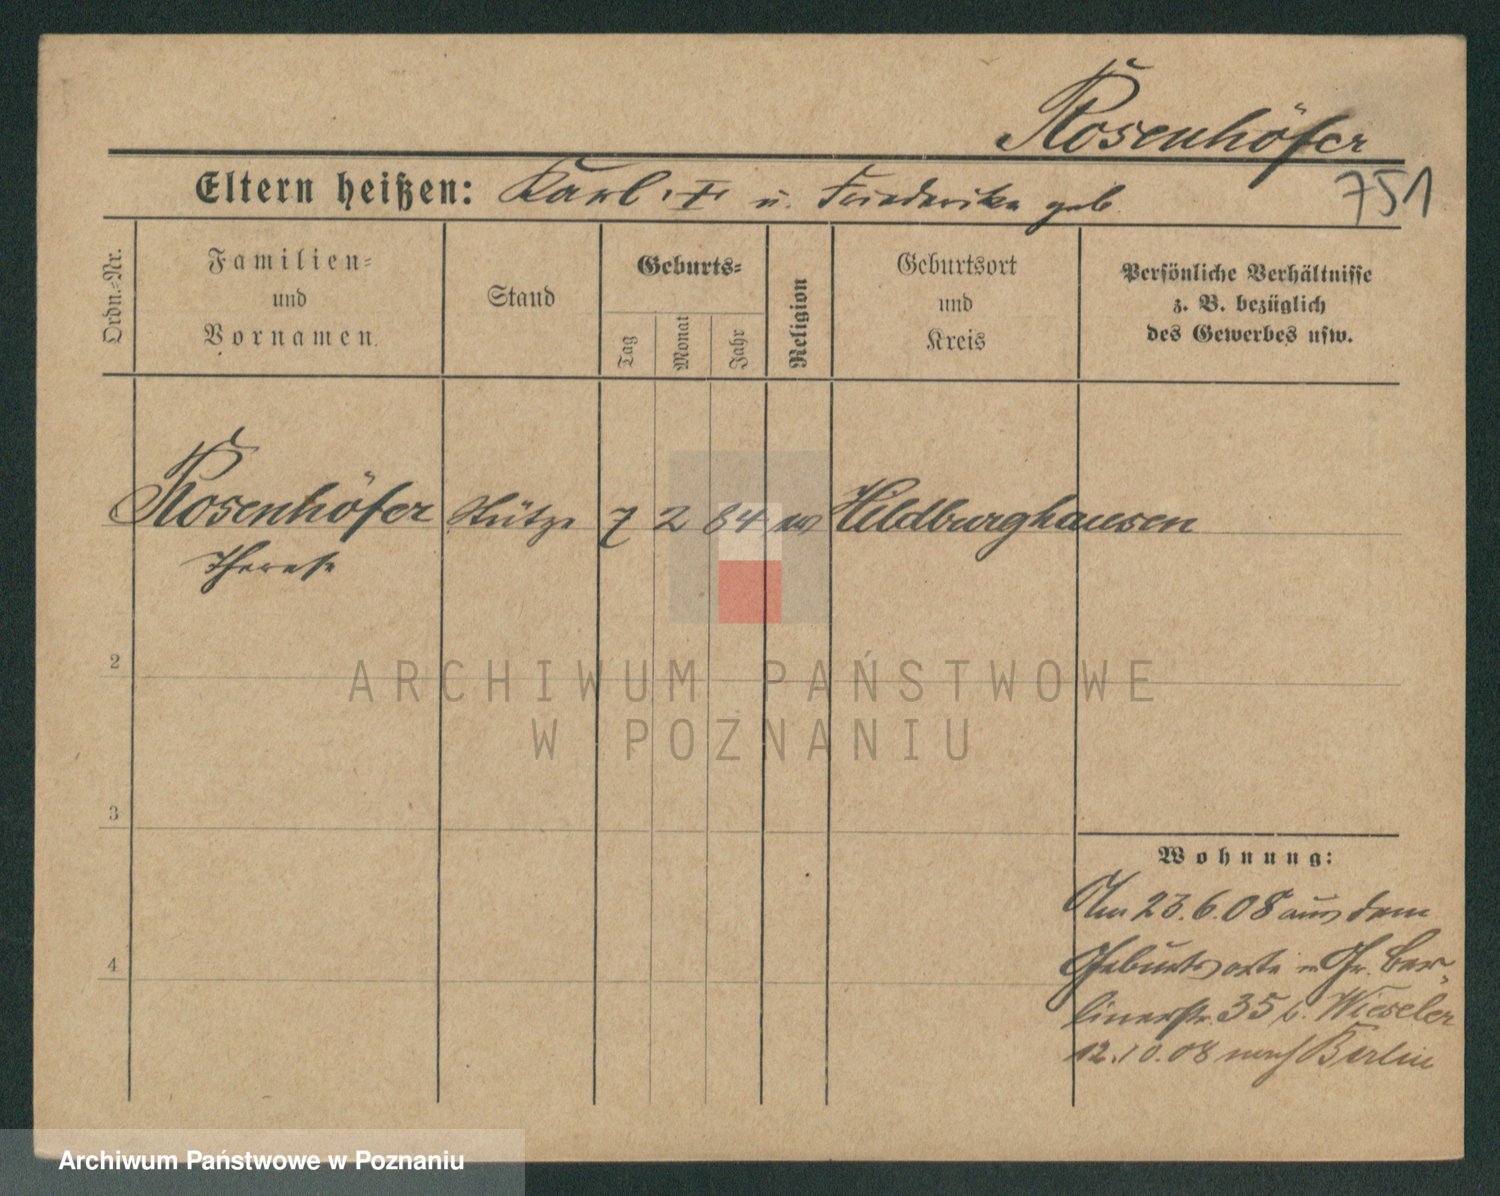 Rosenhöfer
Eltern heißen: Karl, u. Friederike geb.
751
Ordn.-Nr.
Familien-
und
Vornamen.
Stand
Geburts-
Tag
Monat
Jahr
Religion
Geburtsort
und
Kreis
Persönliche Verhältnisse
z. B. bezüglich
des Gewerbes usw.
Rosenhöfer Stütze 7 2 84 Hildburghausen
Therese
2
ARCHIWUM PAŃSTWOWE
W POZNANIU
3
Wohnung:
Am 23.6.08 aus dem
Geburtsorte Gr. Ber-
4
linerstr. 35 b. Wieseler
12.10.08 nach Berlin
Archiwum Państwowe w Poznaniu